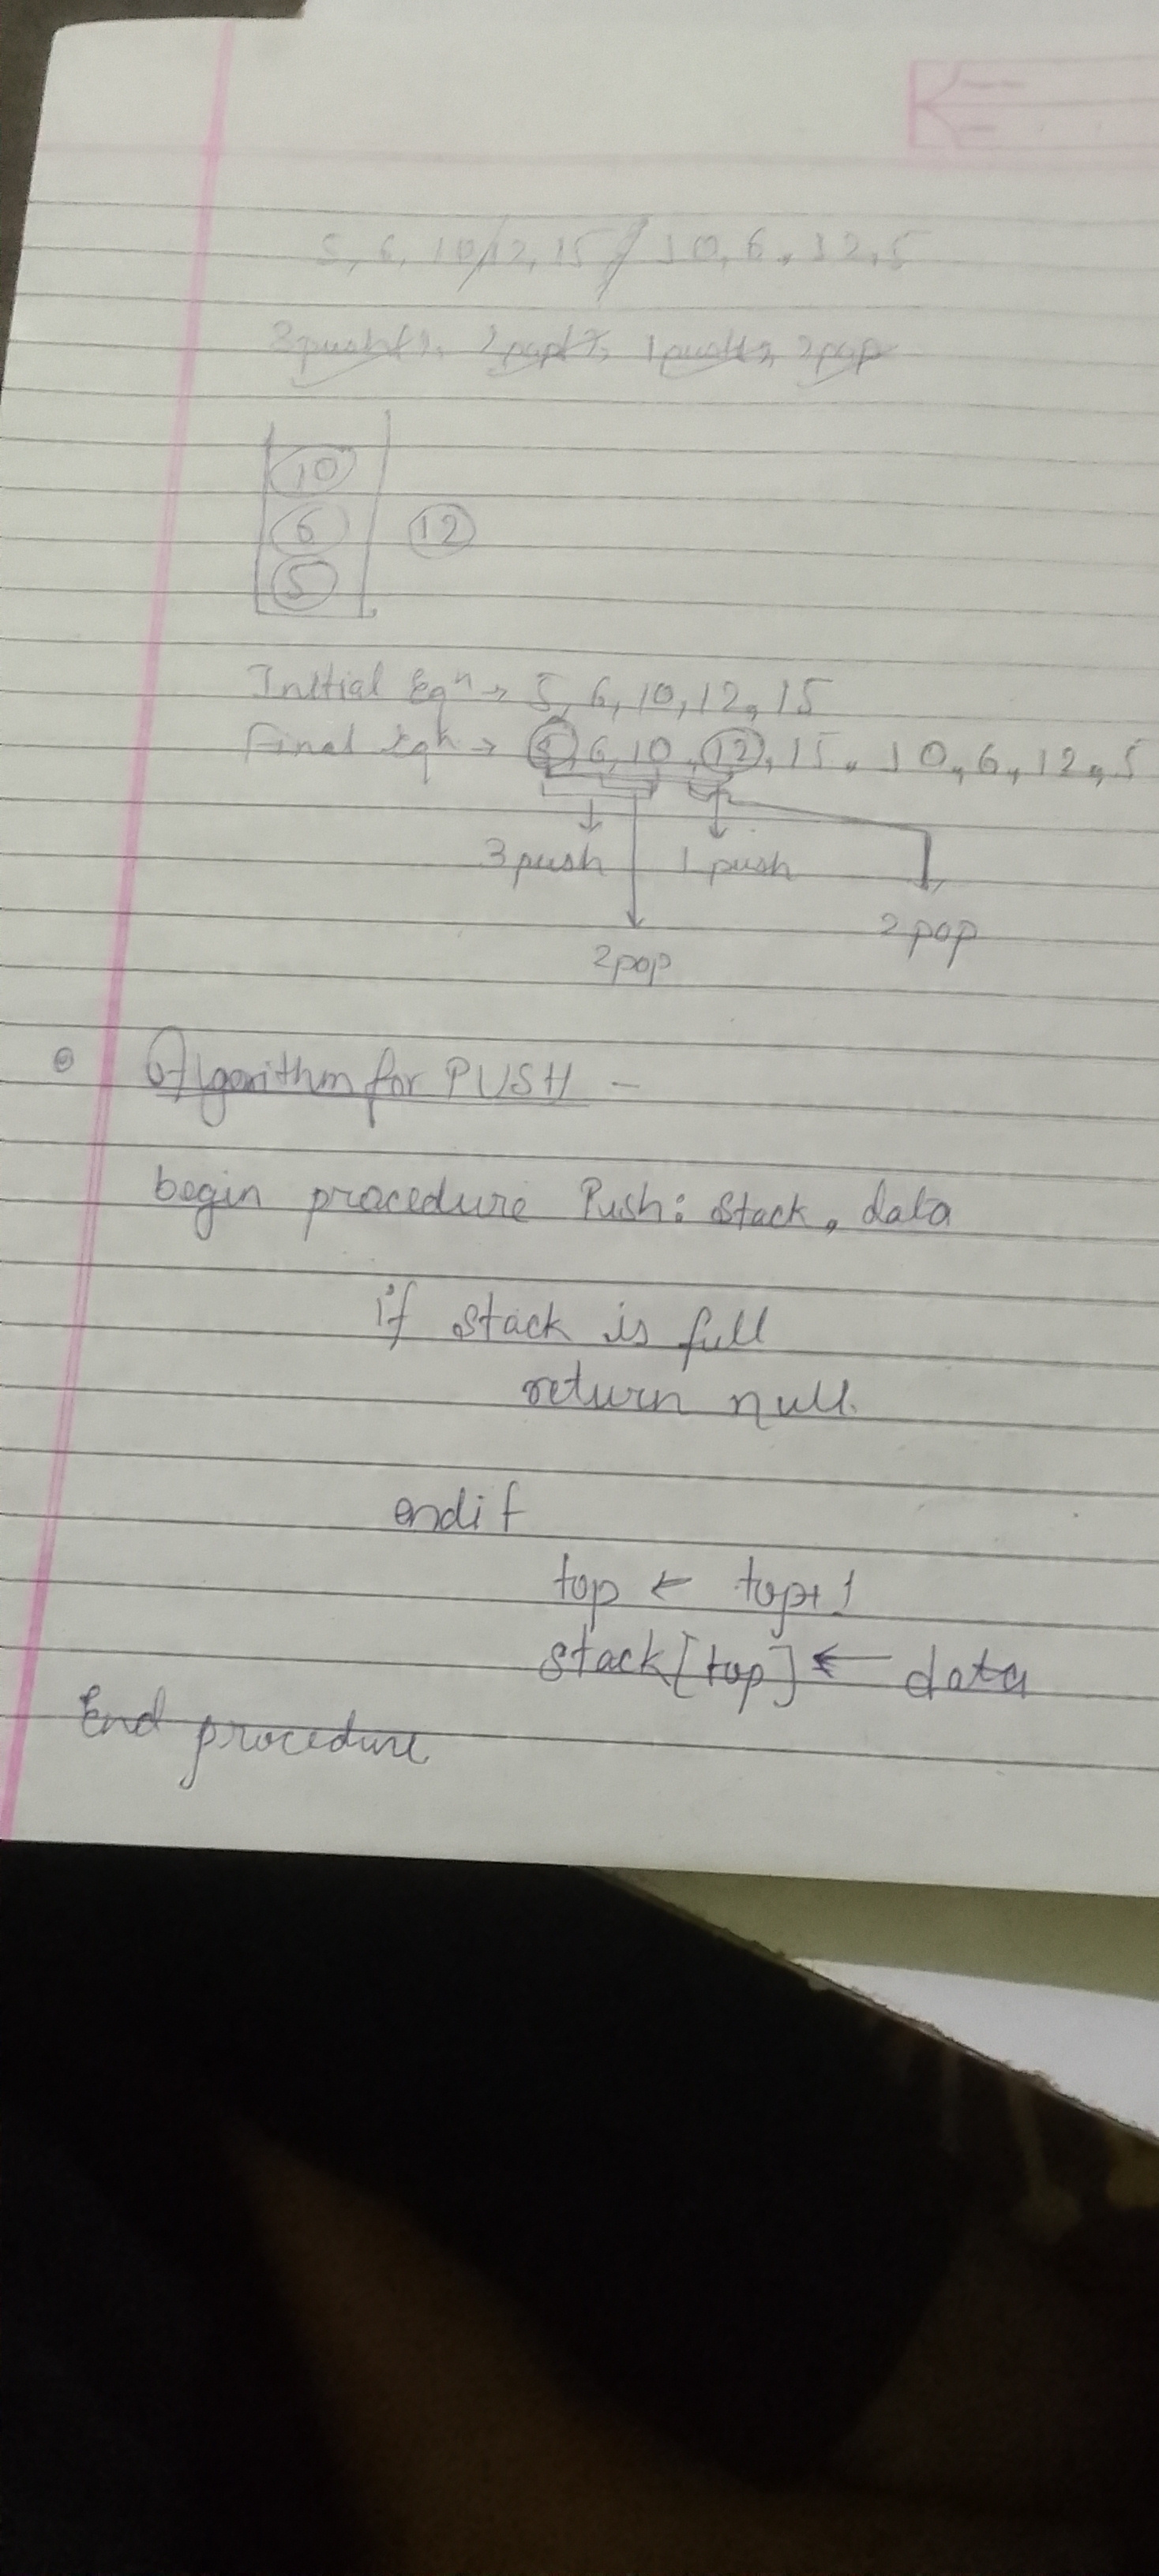 5, 6, 10/12, 15 / 10, 6, 12, 5
2pop
10
6
12
5
Initial Eqⁿ → 5, 6, 10, 12, 15
Final Eqⁿ → 5, 6, 10, 12, 15, 10, 6, 12, 5
3 push 1 push
2 pop
2 pop
Algorithm for PUSH -
begin procedure Push: Stack, data
if stack is full
return null.
endif
top ← top+1
stack[top] ← data
End procedure